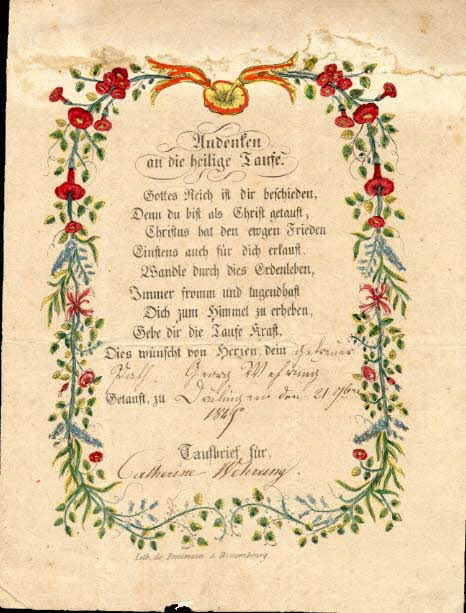 Andenken
an die heilige Taufe.
Gottes Reich ist dir beschieden,
Denn du bist als Christ getauft,
Christus hat den ewgen Frieden
Einstens auch für dich erkauft.
Wandle durch dies Erdenleben,
Immer fromm und tugendhaft
Dich zum Himmel zu erheben,
Gebe dir die Taufe Kraft.
Dies wünscht von Herzen, dein getreuer
Path. Georg Wehrung
Getauft, zu den 21
Taufbrief für,
Catherine Wehrung.
Lith. de à Wissembourg.